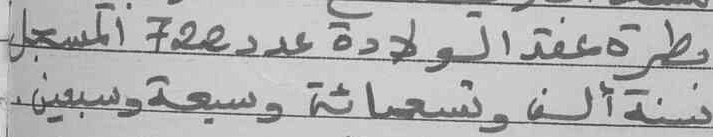 بطرة عقد الولادة عدد 722 المسجل
لسنة ألف وتسعمائة وسبعة وسبعين.